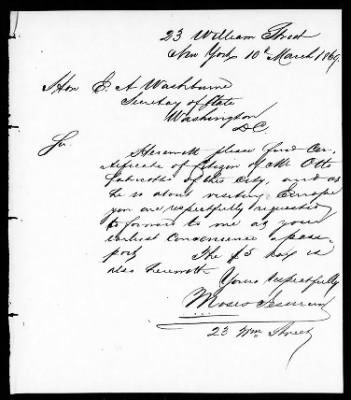 23 William Street
New York 10th March 1869.
Hon E. A. Washburne
Secretary of State
Washington
D.C.
Sir
Herewith please find Cer-
tificate of Citizen of Mr Otto
of this City, and as
he is about visiting Europe
you are respectfully requested
to forward to me at your
earliest Convenience a pass-
port The $5 tax is
also herewith
Yours respectfully
23 Wm Street